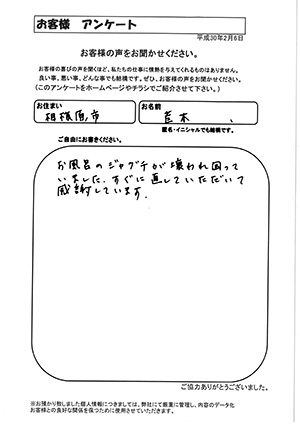 お客様 アンケート
平成30年2月6日
お客様の声をお聞かせください。
お客様の喜びの声を聞くほど、私たちの仕事に情熱を与えてくれるものはありません。
良い事、悪い事、どんな事でも結構です。ぜひ、お客様の声をお聞かせください。
(このアンケートをホームページやチラシでご紹介させて下さい。)
お住まい
お名前
相模原市
荒木
匿名・イニシャルでも結構です。
ご自由にお書きください。
お風呂のジャグチが壊われ困って
いました。すぐに直していただいて
感謝しています。
ご協力ありがとうございました。
※お預かり致しました個人情報につきましては、弊社にて厳重に管理し、内容のデータ化
お客様との良好な関係を保つために使用させていただきます。